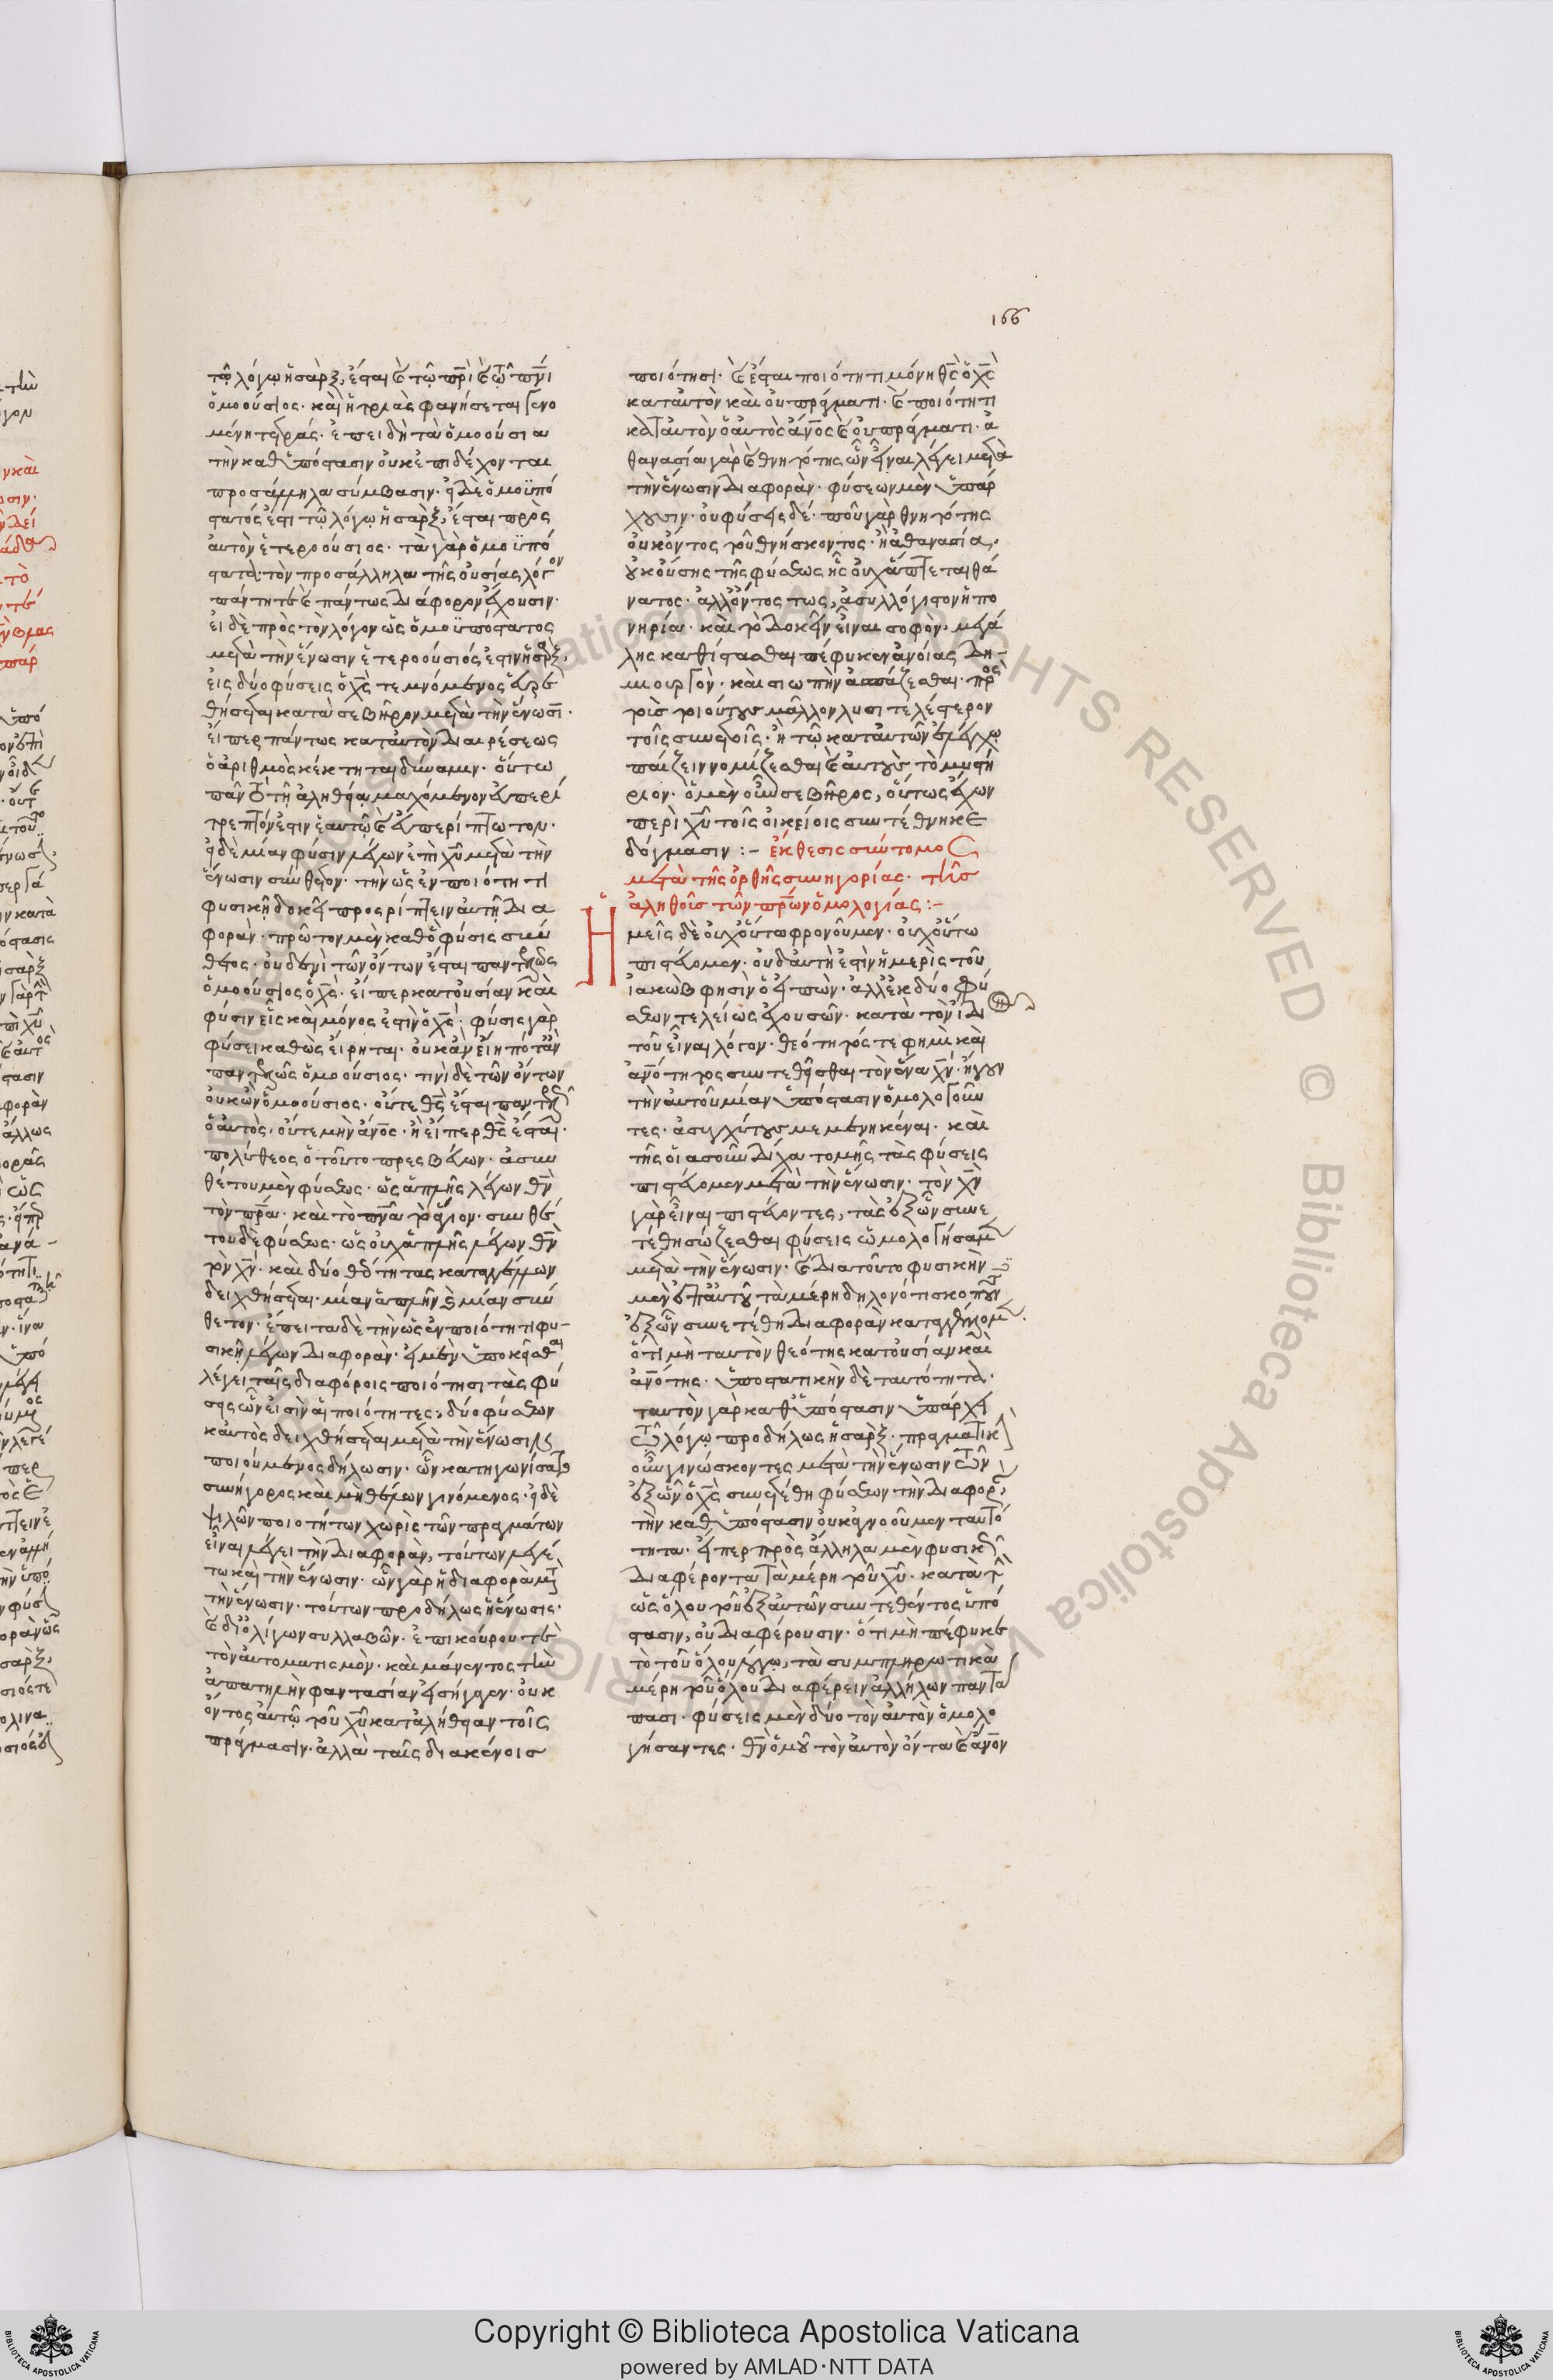 166
τῷ λόγῳ ἡ σὰρξ, ἔσται καὶ τῷ πρὶ καὶ τῷ πνι
ὁμοούσιος· καὶ ἡ τριὰς φανήσεται γενο
μένη τετράς· ἐπειδὴ τὰ ὁμοούσια
τὴν καθ ὑπόστασιν οὐκ ἐπιδέχονται
προσάλληλα σύμβασιν· εἰ δὲ ὁμοϋπό
στατός ἐστι τῷ λόγῳ ἡ σὰρξ, ἔσται πρὸς
αὐτὸν ἑτεροούσιος· τὰ γὰρ ὁμοϋπό
στατα· τὸν προσάλληλα τῆς οὐσίας λόγον
πάντη τε καὶ πάντως διάφορον ἔχουσιν·
εἰ δὲ πρὸς τὸν λόγον ὡς ὁμοϋπόστατος
μετὰ τὴν ἕνωσιν ἑτεροούσιός ἐστιν ἡ σὰρξ,
εἰς δύο φύσεις ὁ χς τεμνόμενος εὑρε
θήσεται κατὰ σεβῆρον μετὰ τὴν ἕνωσιν·
εἴπερ πάντως κατ αὐτὸν διαιρέσεως
ὁ ἀριθμὸς κέκτηται δύναμιν· οὕτω
πᾶν τὸ τῇ ἀληθείᾳ μαχόμενον εὐπερί
τρεπτόν ἐστιν ἑαυτῷ καὶ εὐπερίπτωτον·
εἰ δὲ μίαν φύσιν λέγων ἐπὶ χυ μετὰ τὴν
ἕνωσιν σύνθετον· τὴν ὡς ἐν ποιότητι
φυσικῇ δοκεῖ προσρίπτειν αὐτῇ δια
φορὰν· πρῶτον μὲν καθὸ φύσις σύν
θετος· οὐδενὶ τῶν ὄντων ἔσται παντελῶς
ὁμοούσιος ὁ χς· εἴπερ κατ οὐσίαν καὶ
φύσιν εἷς καὶ μόνος ἐστὶν ὁ χς· φύσις γὰρ
φύσει καθὼς εἴρηται· οὐκ ἂν εἴη ποτ ἂν
παντελῶς ὁμοούσιος· τινὶ δὲ τῶν ὄντων
οὐκ ὢν ὁμοούσιος· οὔτε θς ἔσται παντελῶς
ὁ αὐτὸς, οὔτε μὴν ἄνος· ἢ εἴπερ θς ἔσται·
πολύθεος ὁ τοῦτο πρεσβεύων· ἀσυν
θέτου μὲν φύσεως· ὡς ἁπλῆς λέγων θν
τὸν πρα· καὶ τὸ πνα τὸ ἅγιον· συνθέ
του δὲ φύσεως· ὡς οὐχ ἁπλῆς λέγων θν
τὸν χν· καὶ δύο θεότητας καταγγέλλων
δειχθήσεται· μίαν ἁπλῆν καὶ μίαν σύν
θετον· ἔπειτα δὲ τὴν ὡς ἐν ποιότητι φυ-
σικῇ λέγων διαφορὰν· εἰ μὲν ὑποκεῖσθαι
λέγει ταῖς διαφόροις ποιότησι τὰς φύ
σεις ὧν εἰσὶν αἱ ποιότητες, δύο φύσεων
καὐτὸς δειχθήσεται μετὰ τὴν ἕνωσιν
ποιούμενος δήλωσιν· ὧν κατηγωνίσατο
συνήγορος καὶ μὴ θέλων γινόμενος· εἰ δὲ
ψιλῶν ποιοτήτων χωρὶς τῶν πραγμάτων
εἶναι λέγει τὴν διαφορὰν, τούτων λεγέ
τω καὶ τὴν ἕνωσιν· ὧν γὰρ ἡ διαφορὰ μετὰ
τὴν ἕνωσιν· τούτων προδήλως ἡ ἕνωσις·
καὶ δι ὀλίγων συλλαβῶν· ἐπικούρου τε
τὸν αὐτοματισμὸν· καὶ μάνεντος τὴν
ἀπατηλὴν φαντασίαν εἰσήγαγεν· οὐκ
ὄντος αὐτῷ τοῦ χυ κατ ἀλήθειαν τοῖς
πράγμασιν· ἀλλὰ ταῖς διακένοισ
ποιότησι· καὶ ἔσται ποιότητι μόνῃ θς ὁ χς
κατ αὐτὸν καὶ οὐ πράγματι· καὶ ποιότητι
κατ αὐτὸν ὁ αὐτὸς ἄνος καὶ οὐ πράγματι· ἀ
θανασία γὰρ καὶ θνητότης ὧν εἶναι λέγει μετὰ
τὴν ἕνωσιν διαφορὰν· φύσεων μὲν ὑπάρ
χουσιν· οὐ φύσεις δέ· ποῦ γὰρ θνητότης
οὐκ ὄντος τοῦ θνήσκοντος· ἢ ἀθανασία,
οὐκ οὔσης τῆς φύσεως ἧς οὐχ ἅπτεται θά
νατος· ἀλλ ὄντος τως, ἀσυλλόγιστον ἡ πο
νηρία· καὶ τὸ δοκεῖν εἶναι σοφὸν, μεγά
λης καθίστασθαι πέφυκεν ἀνοίας δη-
μιουργὸν· καὶ σιωπὴν ἀσπάζεσθαι· πρὸς
τοὺς τοιούτους μᾶλλον λυσιτελέστερον
τοῖς συνετοῖς· ἢ τῷ κατ αὐτῶν ἐλέγχῳ
παίζειν νομίζεσθαι καὶ αὐτοὺς τὸ μυστή
ριον· ὁ μὲν οὖν σεβῆρος, οὕτως ἔχων
περὶ χυ τοῖς οἰκείοις συντέθνηκε
δόγμασιν :- ἔκθεσις σύντομος
μετὰ τῆς ὀρθῆς συνηγορίας· τῆς
ἀληθοῦς τῶν πρων ὁμολογίας :-
Ἡμεῖς δὲ οὐχ οὕτω φρονοῦμεν· οὐχ οὕτω
πιστεύομεν· οὐδ αὐτὴ ἐστὶν ἡ μερὶς τοῦ
ἰακὼβ φησὶν ὁ εἰπὼν· ἀλλ ἐκ δύο φύ
σεων τελείως ἐχουσῶν· κατὰ τὸν ἴδι
τοῦ εἶναι λόγον· θεότητός τε φημὶ καὶ
ἀνότητος συντεθεῖσθαι τὸν ἕνα χν· ἤγουν
τὴν αὐτοῦ μίαν ὑπόστασιν ὁμολογοῦν
τες· ἀσυγχύτους μεμενηκέναι· καὶ
τῆς οἱασοῦν δίχα τομῆς τὰς φύσεις
πιστεύομεν μετὰ τὴν ἕνωσιν· τὸν χν
γὰρ εἶναι πιστεύοντες, τὰς ἐξ ὧν συνε
τέθη σώζεσθαι φύσεις ὡμολογήσαμεν
μετὰ τὴν ἕνωσιν· καὶ διὰ τοῦτο φυσικὴν
μὲν ἐπ αὐτοῦ τὰ μέρη δηλονότι σκοποῦντες
ἐξ ὧν συνετέθη διαφορὰν καταγγέλλομεν·
ὅτι μὴ ταυτὸν θεότης κατ οὐσίαν καὶ
ἀνότης· ὑποστατικὴν δὲ ταυτότητα·
ταυτὸν γὰρ καθ ὑπόστασιν ὑπάρχει
τῷ λόγῳ προδήλως ἡ σὰρξ· πραγματικὴν
οὖν γινώσκοντες μετὰ τὴν ἕνωσιν τῶν
ἐξ ὧν ὁ χς συνετέθη φύσεων τὴν διαφορὰν,
τὴν καθ ὑπόστασιν οὐκ ἀγνοοῦμεν ταυτό
τητα· εἴπερ πρὸς ἄλληλα μὲν φυσικῶς
διαφέροντα τὰ μέρη τοῦ χυ· κατὰ τὴν
ὡς ὅλου τοῦ ἐξ αὐτῶν συντεθέντος ὑπό
στασιν, οὐ διαφέρουσιν· ὅτι μὴ πέφυκε
τῷ τοῦ ὅλου λόγῳ, τὰ συμπληρωτικὰ
μέρη τοῦ ὅλου διαφέρειν ἀλλήλων παντά
πασι· φύσεις μὲν δύο τὸν αὐτὸν ὁμολο
γήσαντες· θν ὁμοῦ τὸν αὐτὸν ὄντα καὶ ἄνον
Copyright © Biblioteca Apostolica Vaticana
powered by AMLAD·NTT DATA